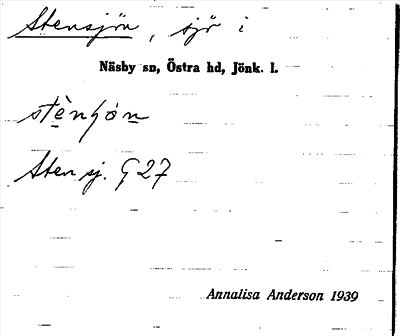 Stensjön, sjö i
Näsby sn, Östra hd, Jönk. l.
Sten sj. G 27
Annalisa Anderson 1939